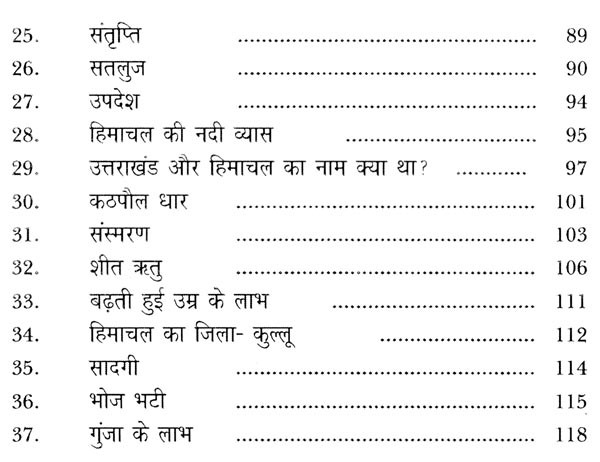 25. संतृप्ति .................................................. 89
26. सतलुज .................................................. 90
27. उपदेश .................................................. 94
28. हिमाचल की नदी व्यास ................................ 95
29. उत्तराखंड और हिमाचल का नाम क्या था? ............ 97
30. कठपौल धार .................................................. 101
31. संस्मरण .................................................. 103
32. शीत ऋतु .................................................. 106
33. बढ़ती हुई उम्र के लाभ .................................. 111
34. हिमाचल का जिला- कुल्लू .......................... 112
35. सादगी .................................................. 114
36. भोज भटी .................................................. 115
37. गुंजा के लाभ .................................................. 118